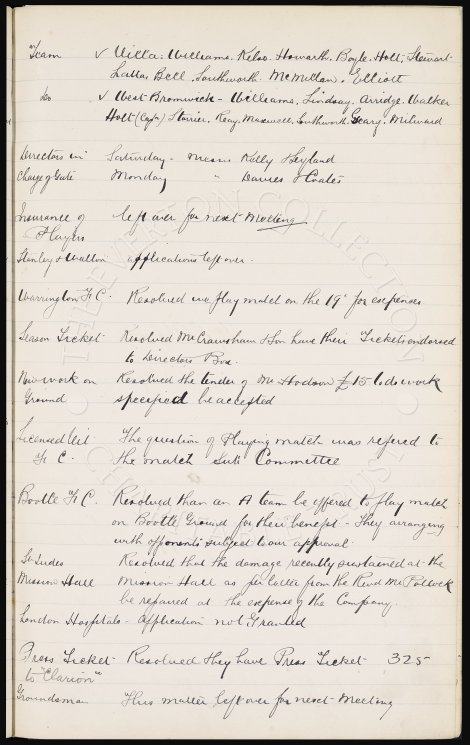 Team v Villa. Williams. Kelso. Howarth. Boyle. Holt. Stewart.
Latta. Bell. Southworth. McMillan. Elliott
do v West Bromwich - Williams, Lindsay, Arridge. Walker
Holt (Capt) Storrier. Reay. Maxwell. Southworth. Geary. Milward
Directors in Saturday - Messrs Kelly & Leyland
charge of Gate Monday " Davies & Coates
Insurance of left over for next Meeting
Players
Stanley & Walton applications left over.
Warrington F C. Resolved we play match on the 19th for expenses
Season Ticket. Resolved Mr Cransham & Son have their Tickets endorsed
to Directors Box.
New work on Resolved the tender of Mr Hodson £15 to do work
Ground specified be accepted
Licensed Vict The question of Playing match was refered to
F C. the match Sub Committee
Bootle F C. Resolved than an A team be offered to play match
on Bootle Ground for their benefit - They arranging
with opponents subject to our approval.
St Judes Resolved that the damage recently sustained at the
Mission Hall Mission Hall as per letter from the Revd Mr Pollock
be repaired at the expense of the Company.
London Hospitals - Application not Granted
Press Ticket Resolved they have Press Ticket 325
to "Clarion"
Groundsman This matter left over for next Meeting
THE EVERTON COLLECTION